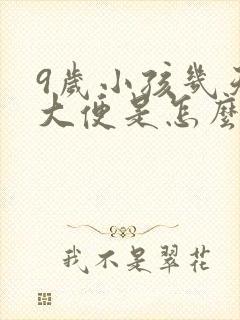 9歲小孩幾
大便是怎麼
我不是翠花